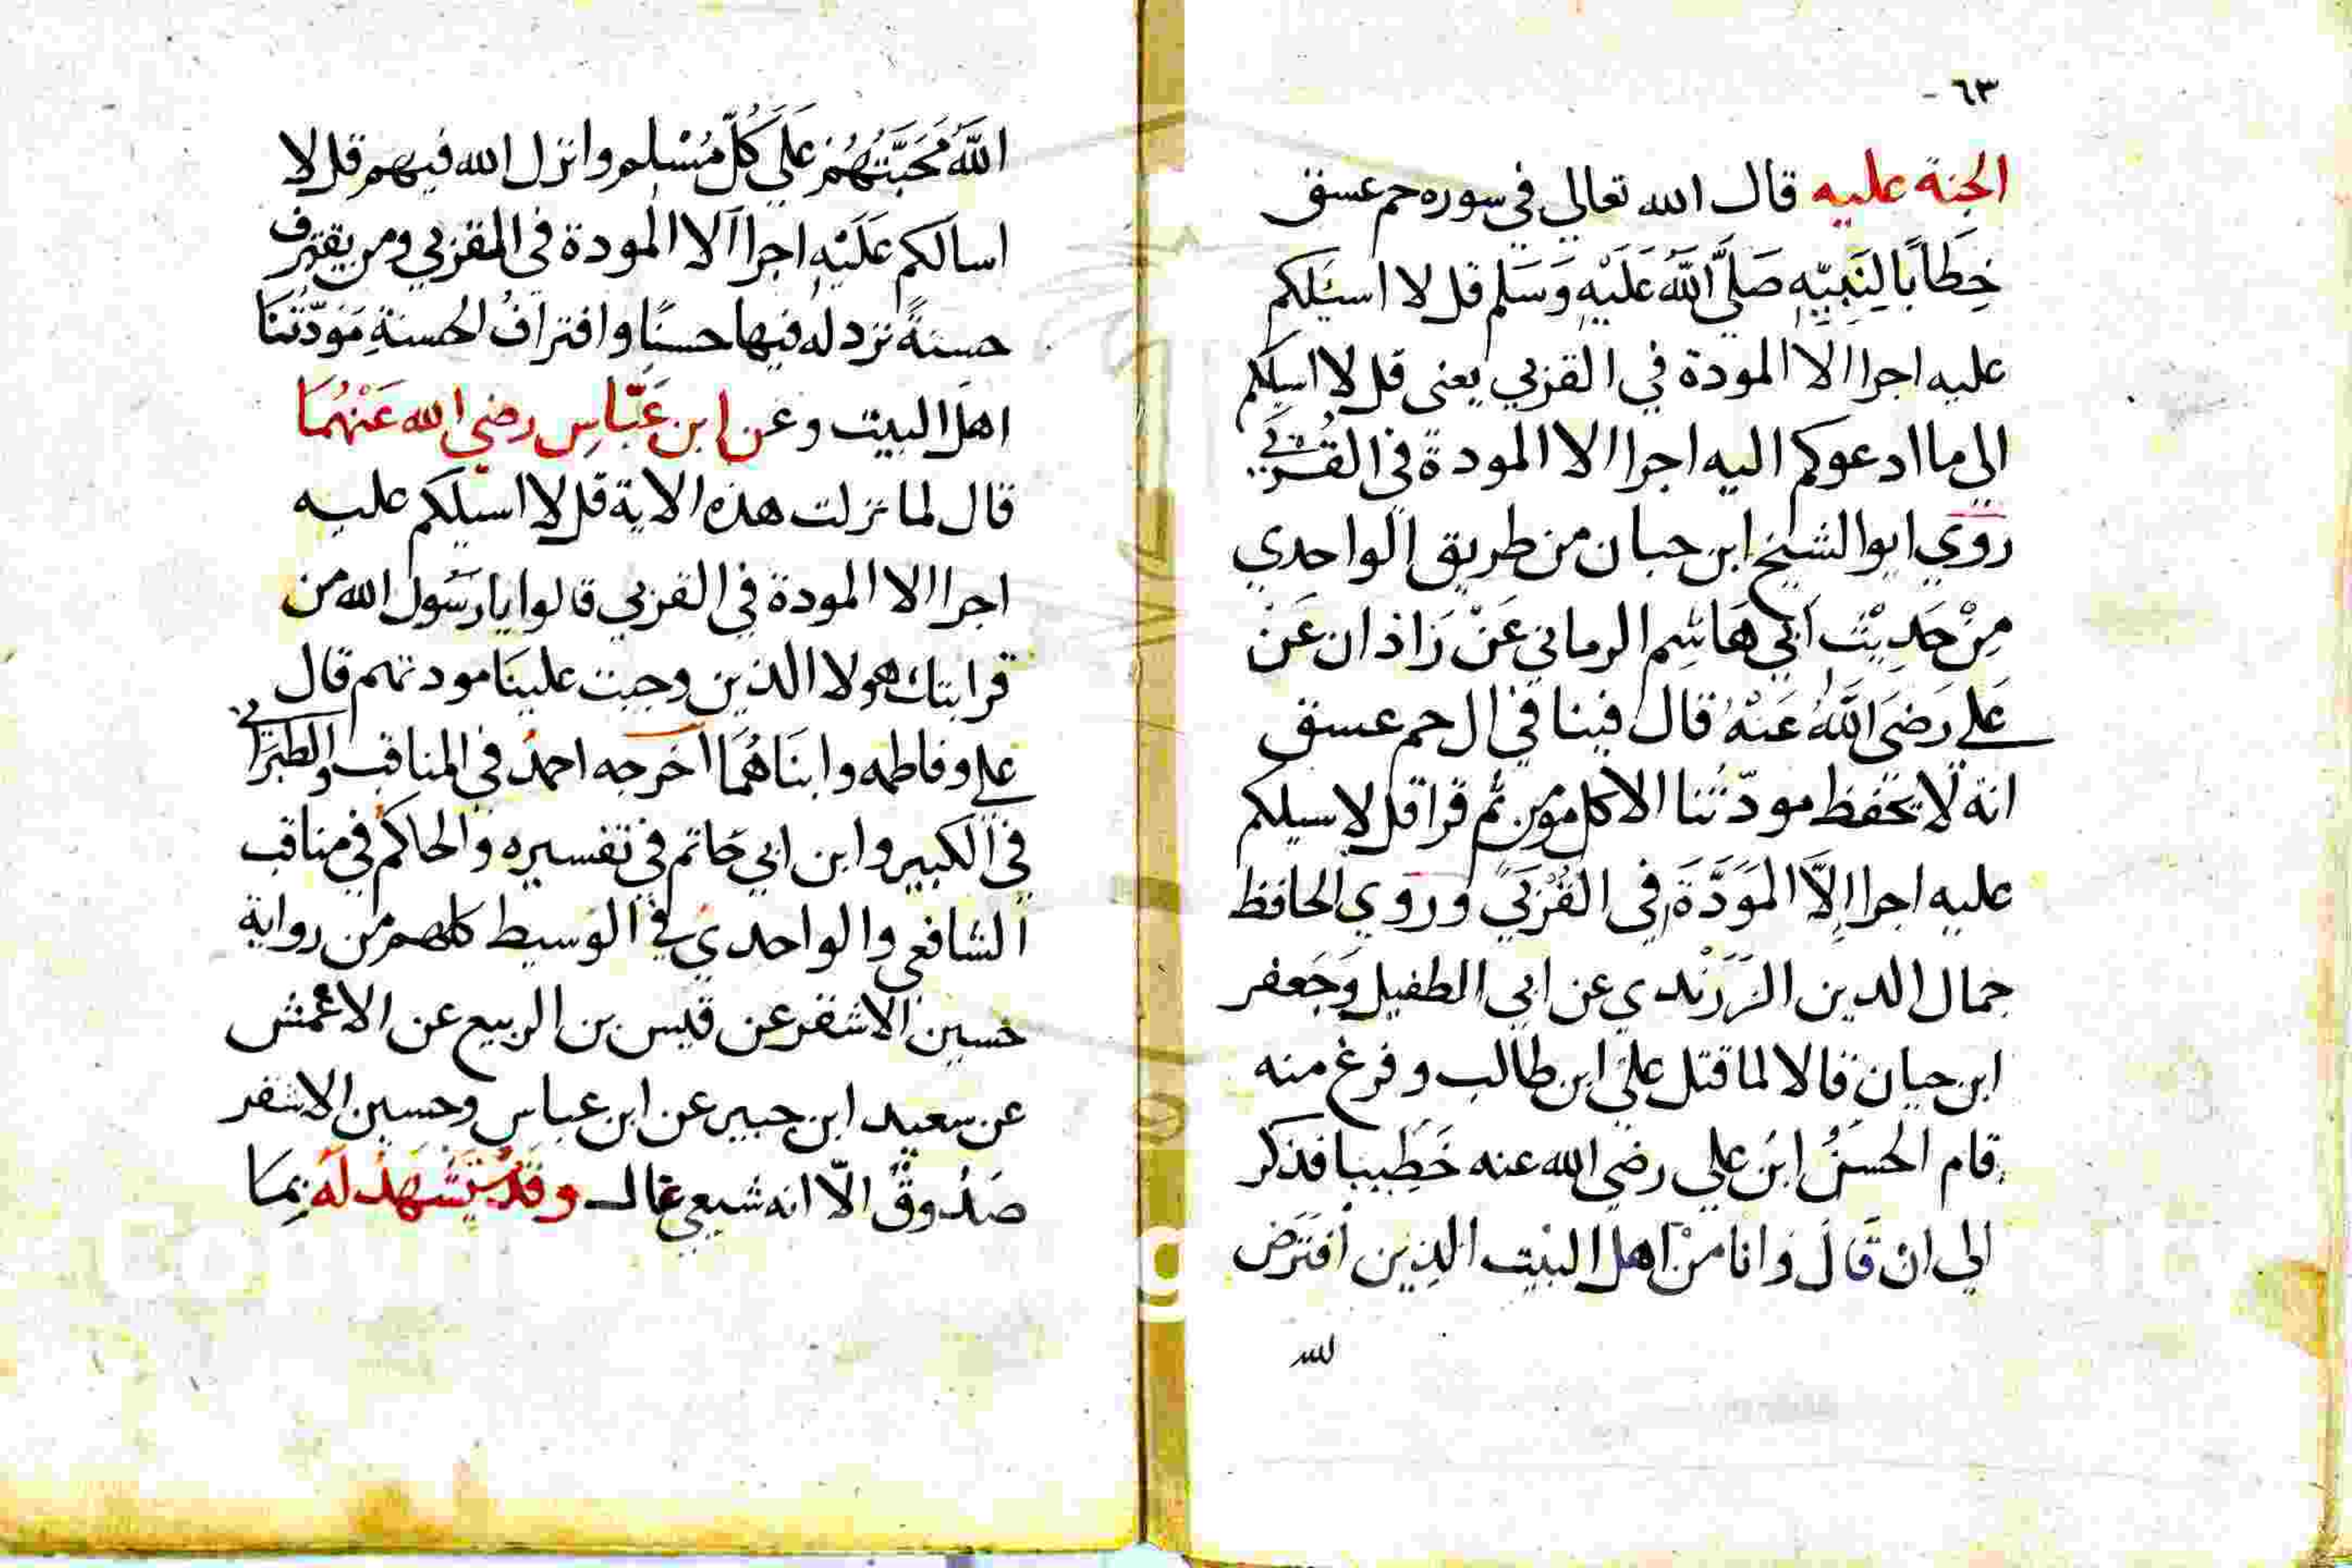 ٦٣
الجنة عليه قال الله تعالي في سوره حم عسق
خِطَابًا لِنَبِيِّهِ صَلَّى اللَّهُ عَلَيْهِ وَسَلم قل لا اسئلكم
عليه اجرا الا المودة في القربي يعني قل لا اسيلكم
الي ما ادعوكم اليه اجرا الا المودة في القُربَي
رَوَي ابو الشيخ ابن حبان من طريق الواحدي
مِنْ حَدِيْث ابي هَاشِم الرماني عَنْ زَاذان عَنْ
عَلي رَضيَ اللَّهُ عَنْهُ قال فينا في ال حم عسق
انه لا يحفظ مودّتُنا الا كل مؤمن ثم قرا قل لا سيلكم
عليه اجرا اِلَّا المَوَدَّةَ في القُرْبَي وروي الحافظ
جمال الدين الزَرَنْدي عن ابي الطفيل وَجَعفر
ابن حيان قالا لما قتل علي ابن طالب وفرغ منه
قام الحَسَنُ ابن علي رضي الله عنه خَطِيبا فذكر
الي انْ قَالَ وَانا منْ اهل البيت الذِين افتَرَض
لله
اللَّهُ مَحَبَّتَهُمْ عَلَي كُلّ مُسْلِم وانزل الله فيهم قل لا
اسالكم عَلَيْهِ اجرا الا المودة في القربي ومن يقترف
حسنةً نزد له فيها حسنًا وافترافُ الحسنةِ مَوَدّتُنَا
اهل البيت وعن ابن عَبّاسِ رضي الله عَنْهُمَا
قال لما نزلت هذه الاية قل لا اسيلكم عليه
اجرا الا المودة في القربي قالوا يا رَسُول الله من
قرابتك هولا الذين وجبت علينَا مودتهم قال
علي وفاطمه وابنَاهُمَا اخرجه احمدُ في المناقب والطبَرَاني
في الكبير وابن ابي حَاتم في تفسيره والحاكم في مناقب
الشافعي والواحدي في الوسيط كلهم من رواية
حسين الاشقر عن قيس بن الربيع عن الاعْمش
عن سعيد ابن جبير عن ابن عباس وحسين الاشقر
صَدُوقٌ الّا انه شيعي غال وقَدْ يُسْتَشهَدُ لَهُ بِمَا